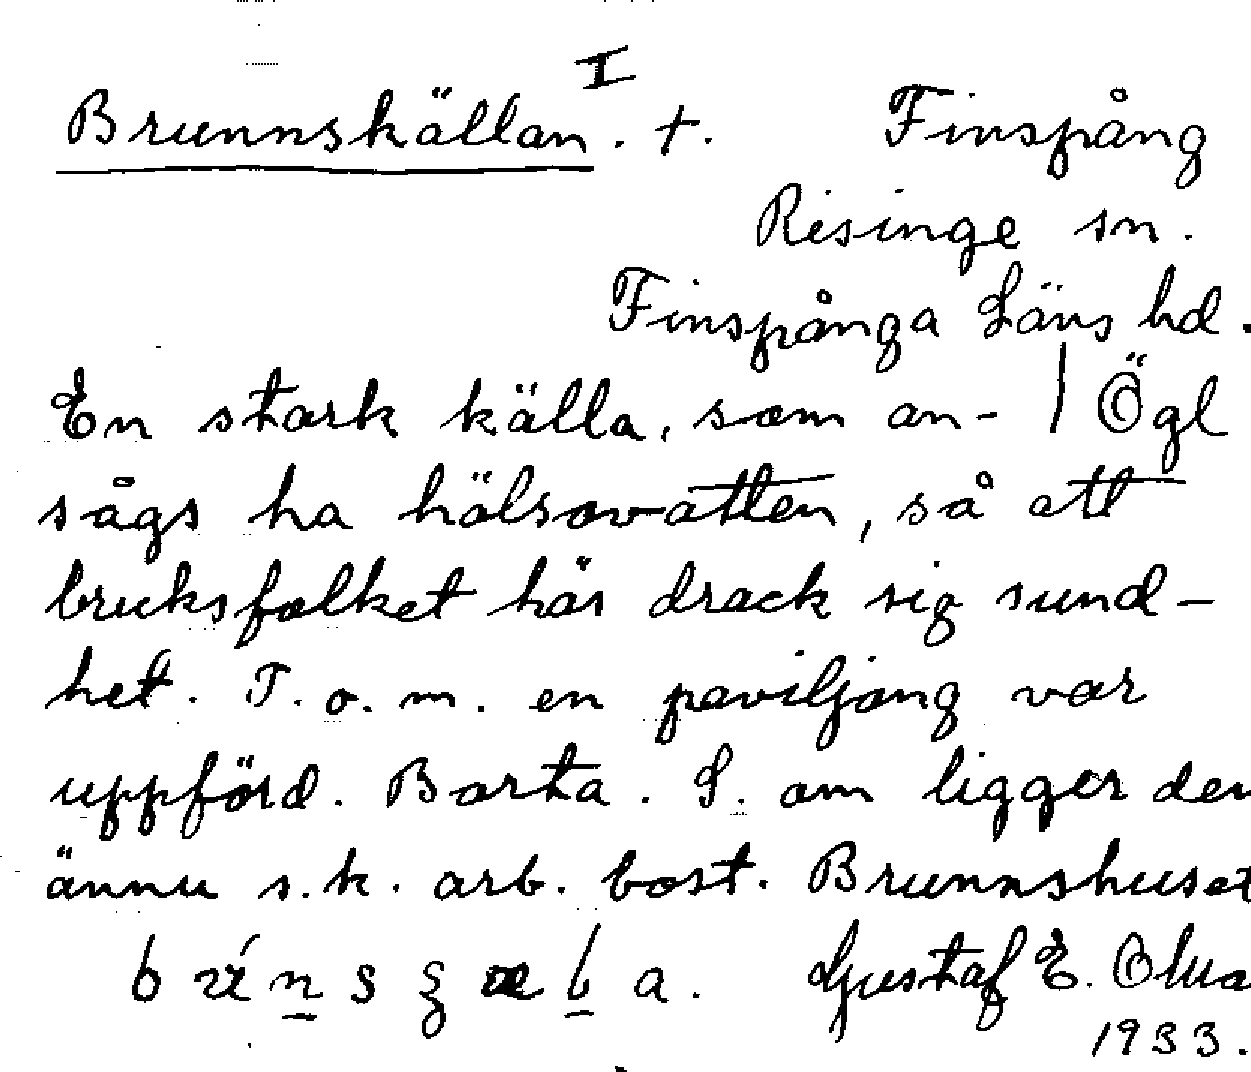 I
Brunnskällan. +. Finspång
Risinge sn.
Finspånga Läns hd.
En stark källa, som an- | Ögl
sågs ha hälsovatten, så att
bruksfolket här drack sig sund-
het. T. o. m. en paviljong var
uppförd. Borta. S. om ligger den
ännu s.k. arb. bost. Brunnshuset
Gustaf E. Olua
1933.